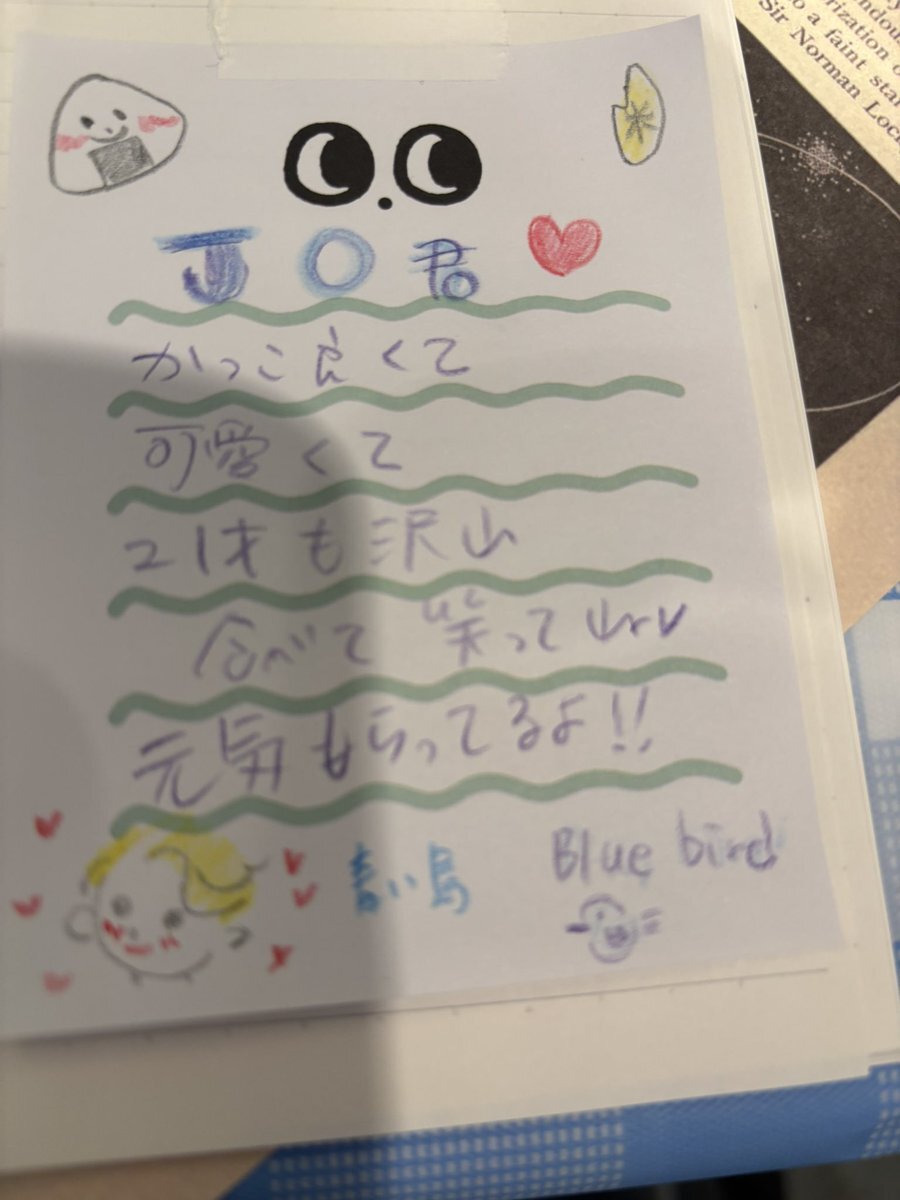 ndou
rization o
o a faint sta
Sir Norman Loc
JO君
かっこ良くて
可愛くて
21才も沢山
食べて 笑って
元気もらってるよ!!
青い鳥
Blue bird